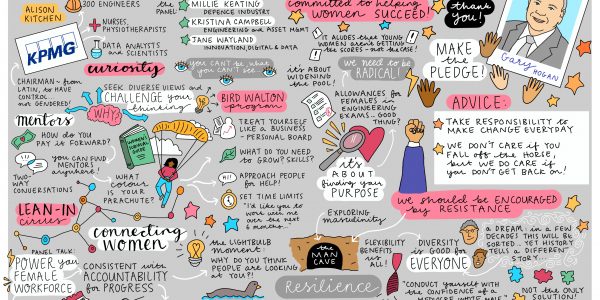 ALISON
KITCHEN
KPMG
300 ENGINEERS
+ NURSES,
PHYSIOTHERAPISTS
DATA ANALYSTS
and SCIENTISTS
the PANEL
MILLIE KEATING
DEFENCE INDUSTRY
KRISTINA CAMPBELL
ENGINEERING and ASSET MGMT
JANE WAYLAND
INNOVATION, DIGITAL & DATA
committed to helping
WOMEN SUCCEED!
thank
you!
Gary HOGAN
curiosity
you can't be, what
you can't see
IT ALUDES THAT YOUNG
WOMEN AREN'T GETTING
the SCORES - not the CASE!
it's ABOUT
WIDENING the
POOL!
we need to be
RADICAL!
MAKE
the
PLEDGE!
CHAIRMAN - FROM
LATIN, to HAVE
CONTROL...
not GENDERED!
SEEK DIVERSE VIEWS and
CHALLENGE your
thinking
WHY?
BIRD WALTON
program
ALLOWANCES for
FEMALES in
ENGINEERING
EXAMS... GOOD
THING?
ADVICE:
TAKE RESPONSIBILITY to
MAKE CHANGE EVERYDAY
WE DON'T CARE if YOU
FALL off the HORSE,
but WE DO CARE if
you DON'T GET BACK on!
mentors
HOW do YOU
PAY is FORWARD?
you CAN FIND
MENTORS
anywhere!
TWO-
WAY
CONVERSATIONS
WOMEN'S
SURVIVAL
GUIDE
WHAT
COLOUR
is YOUR
PARACHUTE?
TREAT YOURSELF
LIKE a BUSINESS
- PERSONAL BOARD
WHAT DO YOU NEED
to GROW? SKILLS?
APPROACH PEOPLE
for HELP!
SET TIME LIMITS
"I'd like you to
work with me
over the next
6 months."
it's
ABOUT
finding your
PURPOSE
we should be ENCOURAGED
by RESISTANCE
LEAN-IN
circles
connecting
WOMEN
EXPLORING
masculinity
the
MAN
CAVE
FLEXIBILITY
BENEFITS
us all!
DIVERSITY
is GOOD for
EVERYONE
a DREAM... in a FEW
DECADES this WILL be
SORTED.. YET HISTORY
TELLS a DIFFERENT
STORY
PANEL TALK:
POWER your
FEMALE
WORKFORCE
CONSISTENT with
ACCOUNTABILITY
for PROGRESS
the LIGHTBULB
moment
WHY DO YOU THINK
PEOPLE are LOOKING
AT YOU?!
Resilience
"CONDUCT yourself WITH
the CONFIDENCE of a
NOT the ONLY
SOLUTION!